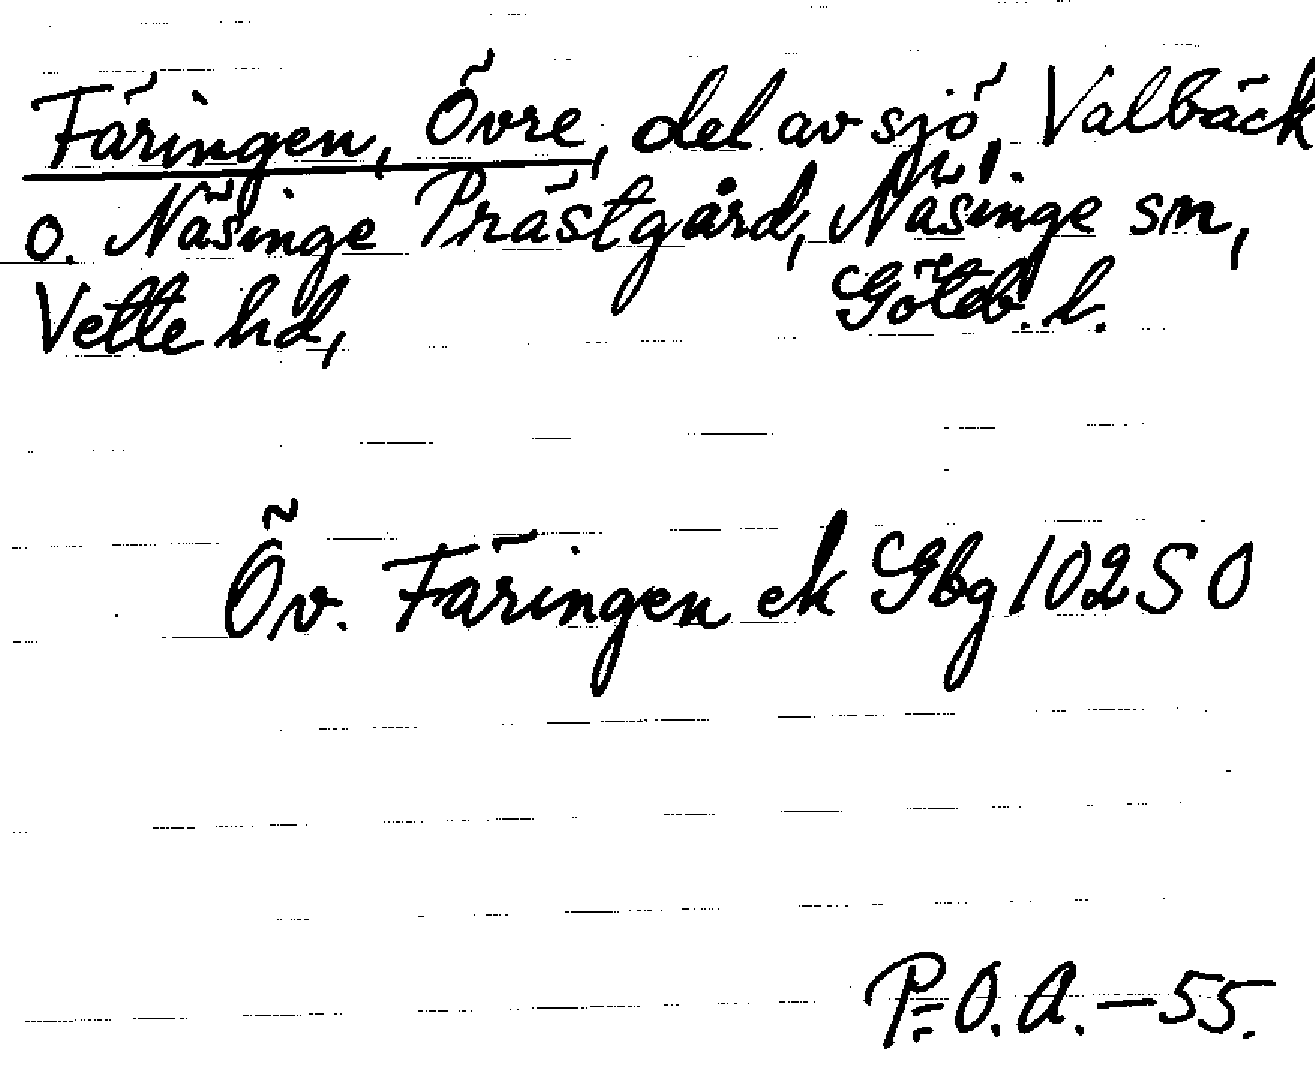 Färingen, Övre, del av sjö, Valbäck
o. Näsinge Prästgård, Näsinge sn,
Vette hd, Göteb. l.
Öv. Färingen ek Gbg 10250
P.O.A.-55.